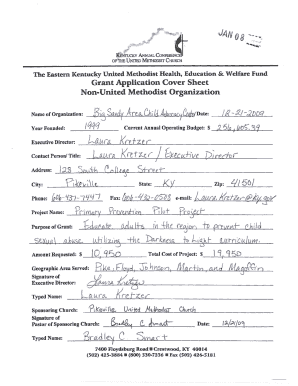 JAN 08
KENTUCKY ANNUAL CONFERENCE
OF THE UNITED METHODIST CHURCH
The Eastern Kentucky United Methodist Health, Education & Welfare Fund
Grant Application Cover Sheet
Non-United Methodist Organization
Name of Organization: Big Sandy Area Child Advocacy Center Date: 12-21-2009
Year Founded: 1999 Current Annual Operating Budget: $ 256,605.39
Executive Director: Laura Kretzer
Contact Person/Title: Laura Kretzer / Executive Director
Address: 128 South College Street
City: Pikeville State: KY Zip: 41501
Phone: 606-437-7447 Fax: e-mail:
Project Name: Primary Prevention Pilot Project
Purpose of Grant: Educate adults in the region to prevent child
sexual abuse utilizing the Darkness to Light curriculum.
Amount Requested: $ 10,950 Total Cost of Project: $ 19,950
Geographic Area Served: Pike, Floyd, Johnson, Martin, and Magoffin
Signature of
Executive Director: Laura Kretzer
Typed Name: Laura Kretzer
Sponsoring Church: Pikeville United Methodist Church
Signature of
Pastor of Sponsoring Church: Bradley C Smart Date: 12/21/09
Typed Name: Bradley C Smart
7400 Floydsburg Road • Crestwood, KY 40014
(502) 425-3884 • (800) 530-7236 • Fax (502) 426-5181